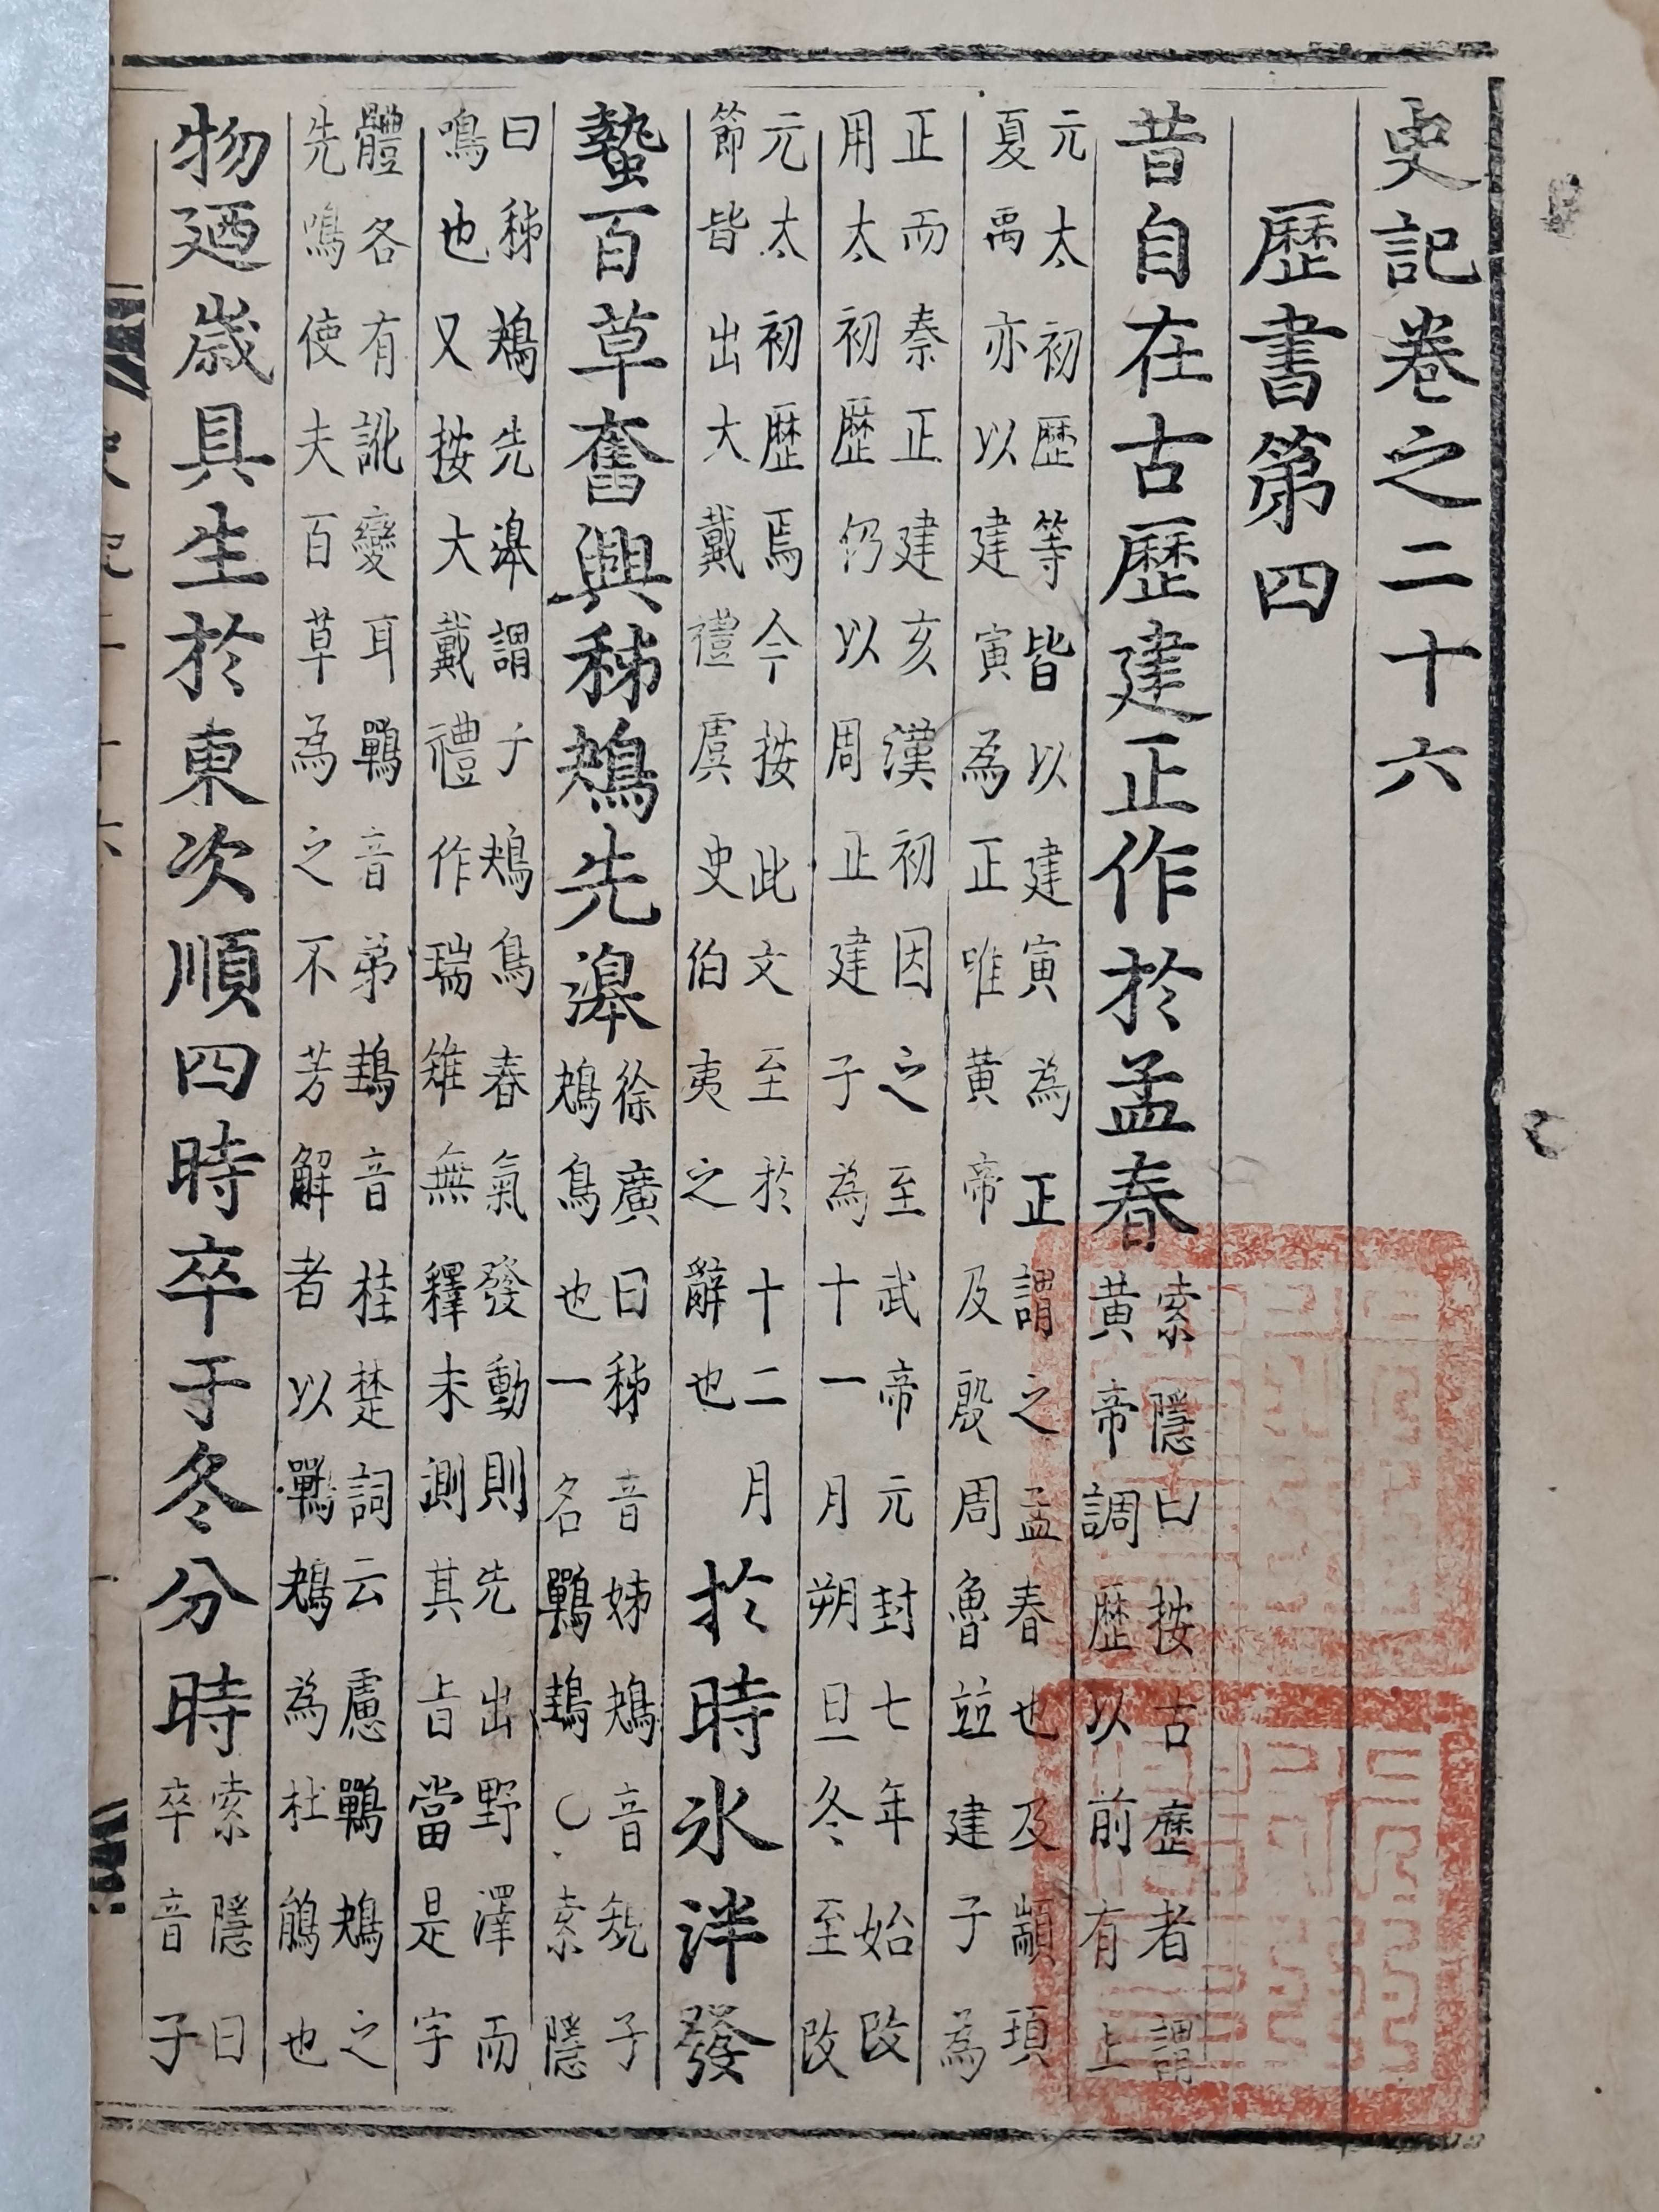 史記卷之二十六
歷書第四
昔自在古歷建正作於孟春索隱曰按古歷者謂黃帝調歷以前有上
元太初歷等皆以建寅為正謂之孟春也及顓頊夏禹亦以建寅為正唯黃帝及殷周魯並建子為
正而秦正建亥漢初因之至武帝元封七年始改用太初歷仍以周止建子為十一月朔旦冬至改
元太初歷焉今按此文至於十二月節皆出大戴禮虞史伯夷之辭也於時氷泮發
蟄百草奮興秭鴂先滜徐廣曰秭音姊鴂音規子鴂鳥也一名鷤䳏○索隱
曰秭鴂先滜謂子鴂鳥春氣發動則先出野澤而鳴也又按大戴禮作瑞雉無釋未測其旨當是字
體各有訛變耳鷤音弟䳏音桂楚詞云慮鷤鴂之先鳴使夫百草為之不芳解者以鷤鴂為杜鵑也
物廼歲具生於東次順四時卒于冬分時索隱曰卒音子